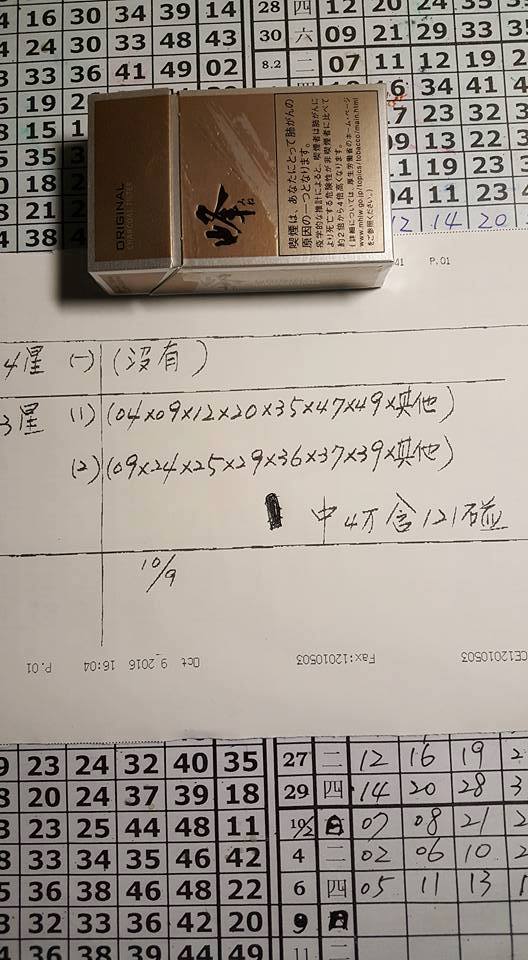 16 30 34 39 14 28 四 12 20 24 35
24 30 33 48 43 30 六 09 21 29 33
33 36 41 49 02 8.2 二 07 11 12 19
19 16 34 41
15 23 32
35 13 22
18 11 19 23
21 04 11 23
38 12 14 20
ORIGINAL
CHARCOAL FILTER
峰
みね
喫煙は、あなたにとって肺がんの
原因の一つとなります。
疫学的な推計によると、喫煙者は肺がんに
より死亡する危険性が非喫煙者に比べて
約2倍から4倍高くなります。
(詳細については、厚生労働省のホーム・ページ
www.mhlw.go.jp/topics/tobacco/main.html
をご参照ください。)
P.01
4星 (一) (沒有)
3星 (1) (04×09×12×20×35×47×49×其他)
(2) (09×24×25×29×36×37×39×其他)
中4万含121碰
10/9
CE12010503 Fax:12010503 Oct 9 2016 16:04 P.01
23 24 32 40 35 27 二 12 16 19
20 24 37 39 18 29 四 14 20 28
23 25 44 48 11 10/2 日 07 08 21
33 34 35 46 42 4 二 02 06 10
36 38 46 48 22 6 四 05 11 13
32 33 36 42 20 9 日
36 38 39 44 49 11 二